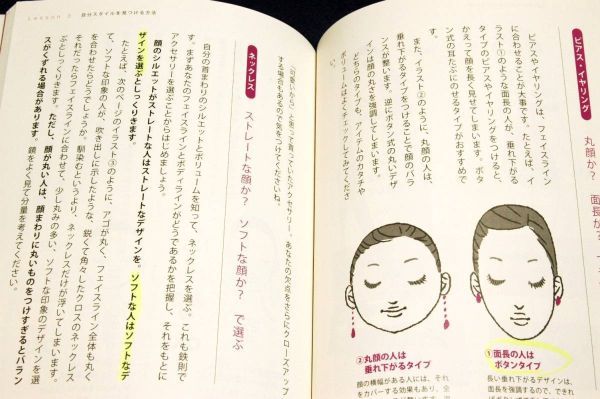 ピアス・イヤリング
丸顔か? 面長か?
ピアスやイヤリングは、フェイスライン
に合わせることが大事です。たとえば、イ
ラスト①のような面長の人が、垂れ下がる
タイプのピアスやイヤリングをつけると、
かえって顔を長く見せてしまいます。ボタ
ン式の耳たぶにのせるタイプがおすすめで
す。
また、イラスト②のように、丸顔の人は、
垂れ下がるタイプをつけることで顔のバラ
ンスが整います。逆にボタン式の丸いデザ
インは顔の丸さを強調してしまいます。
どちらのタイプも、アイテムのカタチや
ボリュームはよくチェックしてみてくださ
い。
①面長の人は
ボタンタイプ
長い垂れ下がるデザインは、
面長を強調するので、できれ
②丸顔の人は
垂れ下がるタイプ
顔の横幅がある人には、それ
をカバーする効果もあり、全
Lesson 2 自分スタイルを見つける方法
「可愛いから」と思って買っていたアクセサリー。あなたの欠点をさらにクローズアップ
する場合もあるので気をつけてくださいね。
ネックレス
ストレートな顔か? ソフトな顔か? で選ぶ
自分の顔まわりのシルエットとボリュームを知って、ネックレスを選ぶ。これも鉄則で
す。まずあなたのフェイスラインとボディラインがどうであるかを把握し、それをもとに
アクセサリーを選ぶことからはじめましょう。
顔のシルエットがストレートな人はストレートなデザインを。ソフトな人はソフトなデ
ザインを選ぶとしっくりきます。
たとえば、次のページのイラスト③のように、アゴが丸く、フェイスライン全体も丸く
て、ソフトな印象の人が、吹き出しに示したような、鋭くて角々したクロスのネックレス
を合わせたらどうでしょうか。馴染むというより、ネックレスだけが浮いてしまいます。
それだったらフェイスラインに合わせて、少し丸みの多い、ソフトな印象のデザインを選
ぶとしっくりきます。ただし、顔が丸い人は、顔まわりに丸いものをつけすぎるとバラン
スがくずれる場合があります。鏡をよく見て分量を考えてください。